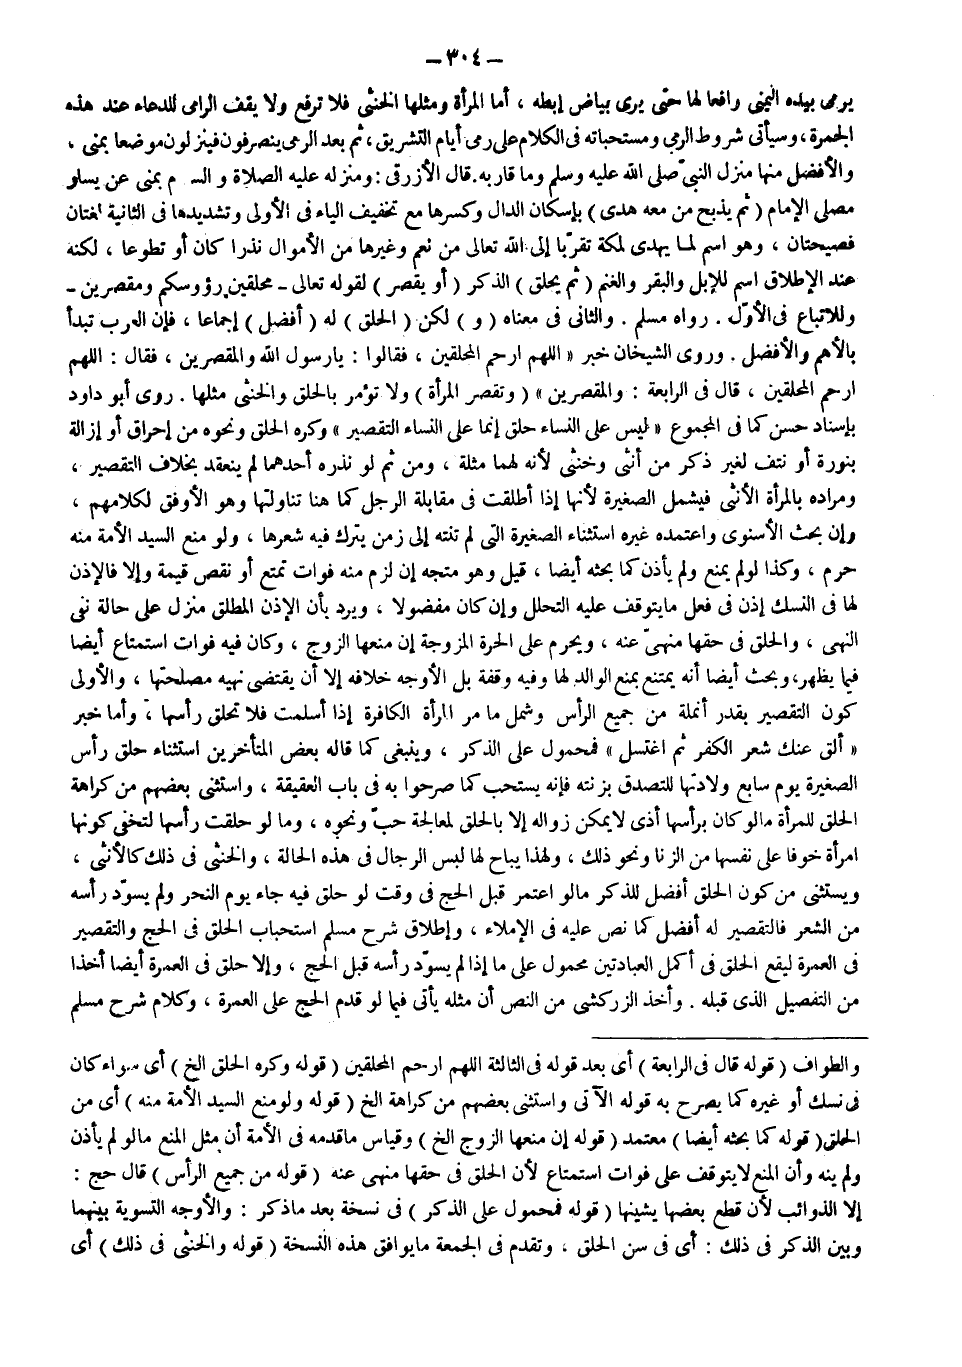 – ٣٠٤ –
يرمى بيده اليمنى رافعا لها حتى يرى بياض إبطه ، أما المرأة ومثلها الخنثى فلا ترفع ولا يقف الرامى للدعاء عند هذه
الجمرة ، وسيأتى شروط الرمي ومستحباته فى الكلام على رمى أيام التشريق ، ثم بعد الرمى ينصرفون فينزلون موضعا بمنى ،
والأفضل منها منزل النبىّ صلى الله عليه وسلم وما قاربه. قال الأزرقى : ومنزله عليه الصلاة و الس م بمنى عن يسار
مصلى الإمام ( ثم يذبح من معه هدى ) بإسكان الدال وكسرها مع تخفيف الياء فى الأولى وتشديدها فى الثانية لغتان
فصيحتان ، وهو اسم لما يهدى لمكة تقرّبا إلى الله تعالى من نعم وغيرها من الأموال نذرا كان أو تطوعا ، لكنه
عند الإطلاق اسم للإبل والبقر والغنم ( ثم يحلق ) الذكر ( أو يقصر ) لقوله تعالى ـ محلقين رؤوسكم ومقصرين ـ
وللاتباع فى الأوّل . رواه مسلم . والثانى فى معناه ( و ) لكن ( الحلق ) له ( أفضل ) إجماعا ، فإن العرب تبدأ
بالأهم والأفضل . وروى الشيخان خبر « اللهم ارحم المحلقين ، فقالوا : يارسول الله والمقصرين ، فقال : اللهم
ارحم المحلقين ، قال فى الرابعة : والمقصرين » ( وتقصر المرأة ) ولا تؤمر بالحلق والخنثى مثلها . روى أبو داود
بإسناد حسن كما فى المجموع « ليس على النساء حلق إنما على النساء التقصير » وكره الحلق ونحوه من إحراق أو إزالة
بنورة أو نتف لغير ذكر من أنثى وخنثى لأنه لهما مثلة ، ومن ثم لو نذره أحدهما لم ينعقد بخلاف التقصير ،
ومراده بالمرأة الأنثى فيشمل الصغيرة لأنها إذا أطلقت فى مقابلة الرجل كما هنا تناولتها وهو الأوفق لكلامهم ،
وإن بحث الأسنوى واعتمده غيره استثناء الصغيرة التى لم تنته إلى زمن يترك فيه شعرها ، ولو منع السيد الأمة منه
حرم ، وكذا لولم يمنع ولم يأذن كما بحثه أيضا ، قيل وهو متجه إن لزم منه فوات تمتع أو نقص قيمة وإلا فالإذن
لها فى النسك إذن فى فعل مايتوقف عليه التحلل وإن كان مفضولا ، ويرد بأن الإذن المطلق منزل على حالة نفى
النهى ، والحلق فى حقها منهىّ عنه ، ويحرم على الحرة المزوجة إن منعها الزوج ، وكان فيه فوات استمتاع أيضا
فيما يظهر، وبحث أيضا أنه يمتنع بمنع الوالد لها وفيه وقفة بل الأوجه خلافه إلا أن يقتضى نهيه مصلحتها ، والأولى
كون التقصير بقدر أنملة من جميع الرأس وشمل ما مر المرأة الكافرة إذا أسلمت فلا تحلق رأسها ، وأما خبر
« ألق عنك شعر الكفر ثم اغتسل » فمحمول على الذكر ، وينبغى كما قاله بعض المتأخرين استثناء حلق رأس
الصغيرة يوم سابع ولادتها للتصدق بزنته فإنه يستحب كما صرحوا به فى باب العقيقة ، واستثنى بعضهم من كراهة
الحلق للمرأة مالو كان برأسها أذى لايمكن زواله إلا بالحلق لمعالجة حبّ ونحوه ، وما لو حلقت رأسها لتخفى كونها
امرأة خوفا على نفسها من الزنا ونحو ذلك ، ولهذا يباح لها لبس الرجال فى هذه الحالة ، والخنثى فى ذلك كالأنثى ،
ويستثنى من كون الحلق أفضل للذكر مالو اعتمر قبل الحج فى وقت لو حلق فيه جاء يوم النحر ولم يسوّد رأسه
من الشعر فالتقصير له أفضل كما نص عليه فى الإملاء ، وإطلاق شرح مسلم استحباب الحلق فى الحج والتقصير
فى العمرة ليقع الحلق فى أكمل العبادتين محمول على ما إذا لم يسوّد رأسه قبل الحج ، وإلا حلق فى العمرة أيضا أخذا
من التفصيل الذى قبله . وأخذ الزركشى من النص أن مثله يأتى فيما لو قدم الحج على العمرة ، وكلام شرح مسلم
والطواف ( قوله قال فى الرابعة ) أى بعد قوله فى الثالثة اللهم ارحم المحلقين ( قوله وكره الحلق الخ ) أى سواء كان
فى نسك أو غيره كما يصرح به قوله الآتى واستثنى بعضهم من كراهة الخ ( قوله ولومنع السيد الأمة منه ) أى من
الحلق( قوله كما بحثه أيضا ) معتمد ( قوله إن منعها الزوج الخ ) وقياس ماقدمه فى الأمة أن مثل المنع مالو لم يأذن
ولم ينه وأن المنع لايتوقف على فوات استمتاع لأن الحلق فى حقها منهى عنه ( قوله من جميع الرأس ) قال حج :
إلا الذوائب لأن قطع بعضها يشينها ( قوله فمحمول على الذكر ) فى نسخة بعد ماذكر : والأوجه التسوية بينهما
وبين الذكر فى ذلك : أى فى سن الحلق ، وتقدم فى الجمعة مايوافق هذه النسخة ( قوله والخنثى فى ذلك ) أى